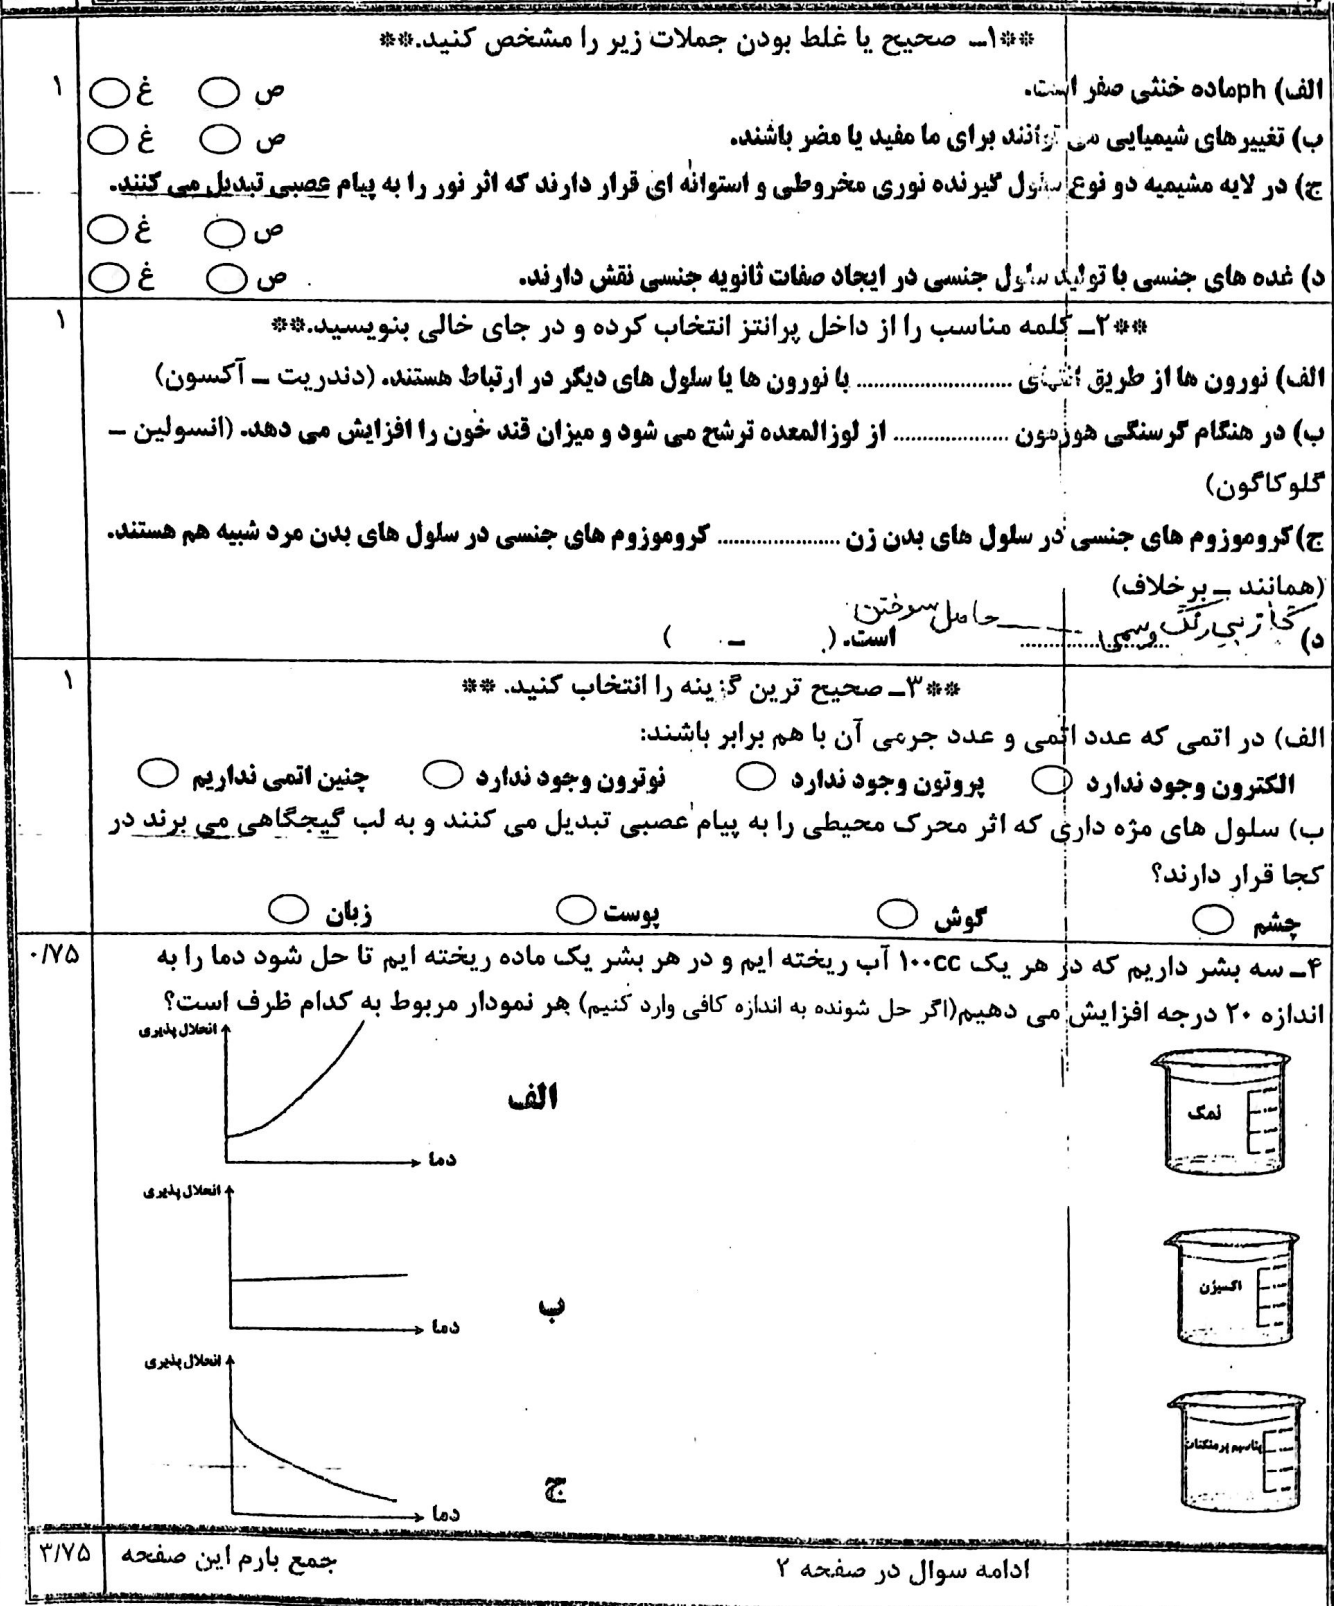 **۱ــ صحیح یا غلط بودن جملات زیر را مشخص کنید.**
۱
الف) phماده خنثی صفر است. ص غ
ب) تغییرهای شیمیایی می توانند برای ما مفید یا مضر باشند. ص غ
ج) در لایه مشیمیه دو نوع سلول گیرنده نوری مخروطی و استوانه ای قرار دارند که اثر نور را به پیام عصبی تبدیل می کنند.
ص غ
د) غده های جنسی با تولید سلول جنسی در ایجاد صفات ثانویه جنسی نقش دارند. ص غ
**۲ــ کلمه مناسب را از داخل پرانتز انتخاب کرده و در جای خالی بنویسید.**
۱
الف) نورون ها از طریق انتهای .......................... با نورون ها یا سلول های دیگر در ارتباط هستند. (دندریت ــ آکسون)
ب) در هنگام گرسنگی هورمون ................... از لوزالمعده ترشح می شود و میزان قند خون را افزایش می دهد. (انسولین ــ
گلوکاگون)
ج)کروموزوم های جنسی در سلول های بدن زن ..................... کروموزوم های جنسی در سلول های بدن مرد شبیه هم هستند.
(همانند ــ برخلاف)
د) گاز بی رنگ و سمی ......................... حاصل سوختن است. ( ــ )
**۳ــ صحیح ترین گزینه را انتخاب کنید. **
۱
الف) در اتمی که عدد اتمی و عدد جرمی آن با هم برابر باشند:
الکترون وجود ندارد پروتون وجود ندارد نوترون وجود ندارد چنین اتمی نداریم
ب) سلول های مژه داری که اثر محرک محیطی را به پیام عصبی تبدیل می کنند و به لب گیجگاهی می برند در
کجا قرار دارند؟
چشم گوش پوست زبان
۰/۷۵
۴ــ سه بشر داریم که در هر یک ۱۰۰cc آب ریخته ایم و در هر بشر یک ماده ریخته ایم تا حل شود دما را به
اندازه ۲۰ درجه افزایش می دهیم(اگر حل شونده به اندازه کافی وارد کنیم) هر نمودار مربوط به کدام ظرف است؟
نمک
الف
انحلال پذیری
دما
اکسیژن
ب
انحلال پذیری
دما
پتاسیم پرمنگنات
ج
انحلال پذیری
دما
ادامه سوال در صفحه ۲
جمع بارم این صفحه
۳/۷۵